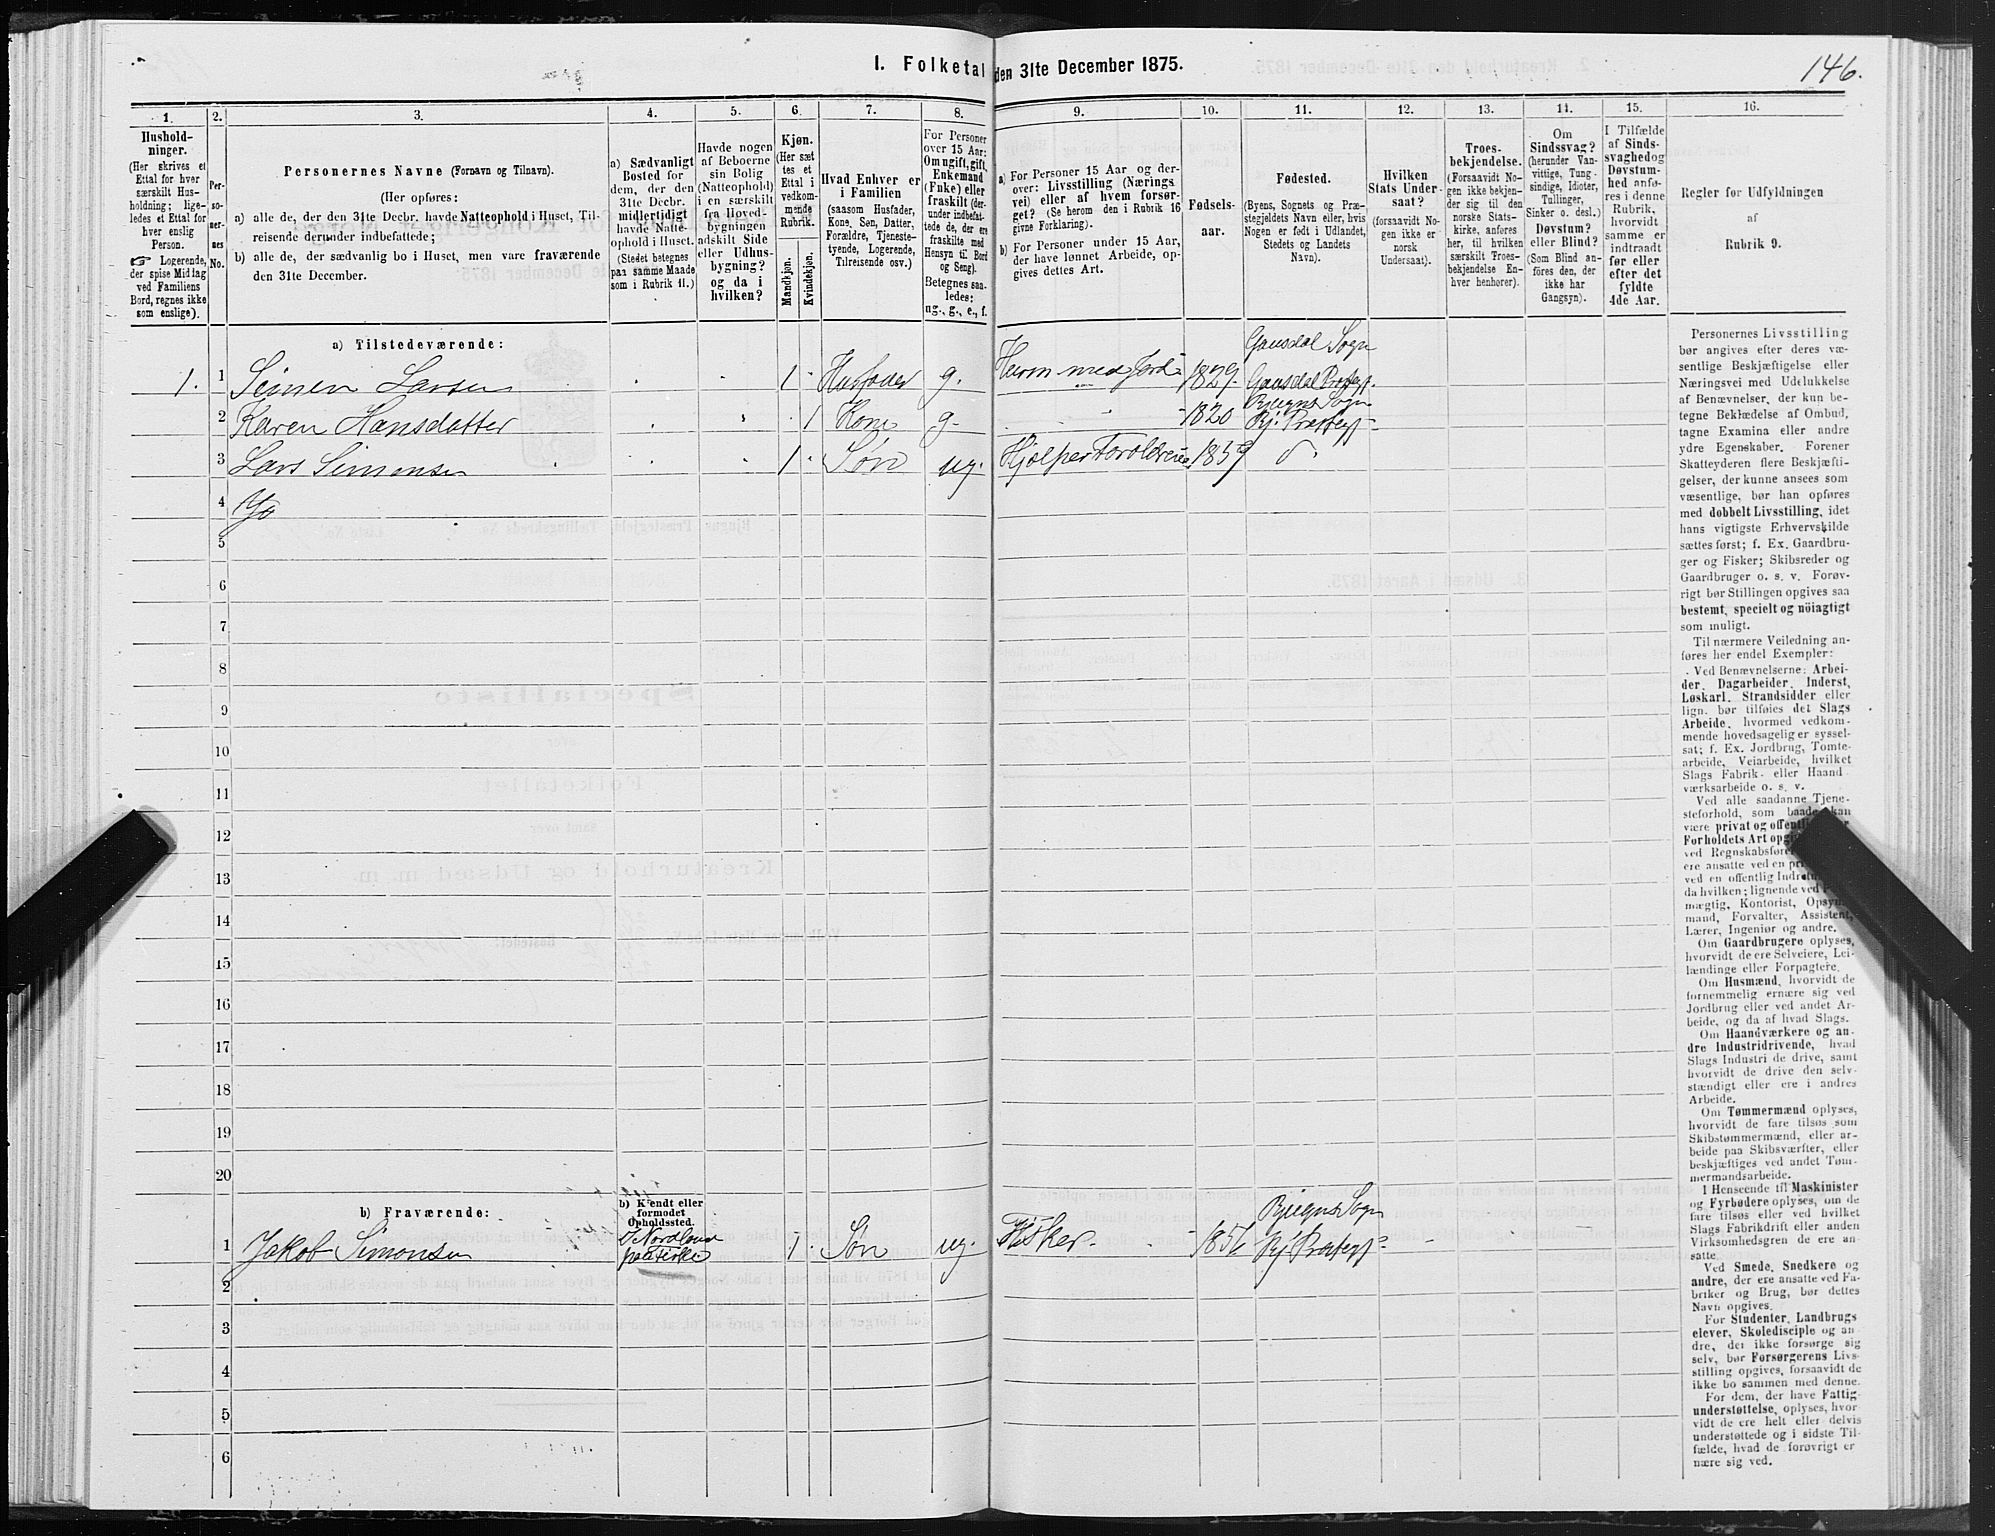 146.
I. Folketal den 31te December 1875.
1. 2. 3. 4. 5. 6. 7. 8. 9. 10. 11. 12. 13. 14. 15. 16.
Hushold-
ninger.
(Her skrives et
Ettal for hver
særskilt Hus-
holdning; lige-
ledes et Ettal for
hver enslig
Person.
☞ Logerende,
der spise Middag
ved Familiens
Bord, regnes ikke
som enslige).
Per-
so-
ner-
nes
No.
Personernes Navne (Fornavn og Tilnavn).
(Her opføres:
a) alle de, der den 31te Decbr. havde Natteophold i Huset, Til-
reisende derunder indbefattede;
b) alle de, der sædvanlig bo i Huset, men vare fraværende
den 31te December.
a) Sædvanligt
Bosted for
dem, der den
31te Decbr.
midlertidigt
havde Natte-
ophold i Huset.
(Stedet betegnes
paa samme Maade
som i Rubrik 11.)
Havde nogen
af Beboerne
sin Bolig
(Natteophold)
i en særskilt
fra Hoved-
bygningen
adskilt Side
eller Udhus-
bygning?
og da i
hvilken?
Kjøn.
(Her sæt
tes et
Ettal i
vedkom-
mende
Rubrik.
Mandkjøn.
Kvindekjøn.
Hvad Enhver er
i Familien
(saasom Husfader,
Kone, Søn, Datter,
Forældre, Tjeneste-
tyende, Logerende,
Tilreisende osv.)
For Personer
over 15 Aar:
Om ugift, gift,
Enkemand
(Enke) eller
fraskilt (der-
under indbefat-
tede de, der ere
fraskilte med
Hensyn til Bord
og Seng).
Betegnes saa-
ledes:
ug., g., e., f.
a) For Personer 15 Aar og der-
over: Livsstilling (Nærings
vei) eller af hvem forsør-
get? (Se herom den i Rubrik 16
givne Forklaring).
b) For Personer under 15 Aar,
der have lønnet Arbeide, op-
gives dettes Art.
Fødsels-
aar.
Fødested.
(Byens, Sognets og Præ-
stegjeldets Navn eller, hvis
Nogen er født i Udlandet,
Stedets og Landets
Navn).
Hvilken
Stats Under-
saat?
(forsaavidt No-
gen ikke er
norsk
Undersaat).
Troes-
bekjendelse.
(Forsaavidt No-
gen ikke bekjen-
der sig til den
norske Stats-
kirke, anføres
her, til hvilken
særskilt Troes-
bekjendelse En-
hver henhører).
Om
Sindssvag?
(herunder Van-
vittige, Tung-
sindige, Idioter,
Tullinger,
Sinker o. desl.)
Døvstum?
eller Blind?
(Som Blind an-
føres den, der
ikke har
Gangsyn).
I Tilfælde
af Sinds-
svaghed og
Døvstum-
hed anfø-
res i denne
Rubrik,
hvorvidt
samme er
indtraadt
før eller
efter det
fyldte
4de Aar.
Regler for Udfyldningen
af
Rubrik 9.
a) Tilstedeværende:
1. 1 Simen Larsen 1 Husfader g. Husm med Jord 1829. Gausdal Sogn
Gausdal Præstgj.
2 Karen Hansdatter 1 Kone g. 1820 Bjugns Sogn
Bj. Præstgj.
3 Lars Simonsen 1 Søn ug. Hjælper Forældrene 1859
4
5
6
7
8
9
10
11
12
13
14
15
16
17
18
19
20
b) Fraværende:
b) Kjendt eller
formodet
Opholdssted.
1 Jakob Simonsen 1 Søn ug. Fisker 1856 Bjugns Sogn
Bj Præstgj
2
3
4
5
6
Personernes Livsstilling
bør angives efter deres væ-
sentlige Beskjæftigelse eller
Næringsvei med Udelukkelse
af Benævnelser, der kun be-
tegne Beklædelse af Ombud,
tagne Examina eller andre
ydre Egenskaber. Forener
Skatteyderen flere Beskjæfti-
gelser, der kunne ansees som
væsentlige, bør han opføres
med dobbelt Livsstilling, idet
hans vigtigste Erhvervskilde
sættes først; f. Ex. Gaardbru-
ger og Fisker; Skibsreder og
Gaardbruger o. s. v. Forøv-
rigt bør Stillingen opgives saa
bestemt, specielt og nöiagtigt
som muligt.
Til nærmere Veiledning an-
føres her endel Exempler:
Ved Benævnelserne: Arbei-
der, Dagarbeider, Inderst,
Løskarl, Strandsidder eller
lign. bør tilføies det Slags
Arbeide, hvormed vedkom-
mende hovedsagelig er syssel-
sat; f. Ex. Jordbrug, Tomte-
arbeide, Veiarbeide, hvilket
Slags Fabrik- eller Haand
værksarbeide o. s. v.
Ved alle saadanne Tjene-
steforhold, som baade kan
være privat og
Forholdets Art
ved
ere ansatte ved en
ved en offentlig
da hvilken; lignende ved
mægtig, Kontorist,
mand, Forvalter, Assistent,
Lærer, Ingeniør og andre.
Om Gaardbrugere oplyses,
hvorvidt de ere Selveiere, Lei-
lændinge eller Forpagtere.
Om Husmænd, hvorvidt de
fornemmelig ernære sig ved
Jordbrug eller ved andet Ar-
beide, og da af hvad Slags.
Om Haandværkere og an-
dre Industridrivende, hvad
Slags Industri de drive, samt
hvorvidt de drive den selv-
stændigt eller ere i andres
Arbeide.
Om Tømmermænd oplyses,
hvorvidt de fare tilsøs som
Skibstømmermænd, eller ar-
beide paa Skibsværfter, eller
beskjæftiges ved andet Tøm-
mermandsarbeide.
I Henseende til Maskinister
og Fyrbødere oplyses, om de
fare tilsøs eller ved hvilket
Slags Fabrikdrift eller anden
Virksomhedsgren de ere an-
satte.
Ved Smede, Snedkere og
andre, der ere ansatte ved Fa-
briker og Brug, bør dettes
Navn opgives.
For Studenter, Landbrugs
elever, Skoledisciple og an-
dre, der ikke forsørge sig
selv, bør Forsørgerens Livs-
stilling opgives, forsaavidt de
ikke bo sammen med denne.
For dem, der have Fattig-
understøttelse, oplyses, hvor-
vidt de ere helt eller delvis
understøttede og i sidste Til-
fælde, hvad de forøvrigt er
nære sig ved.